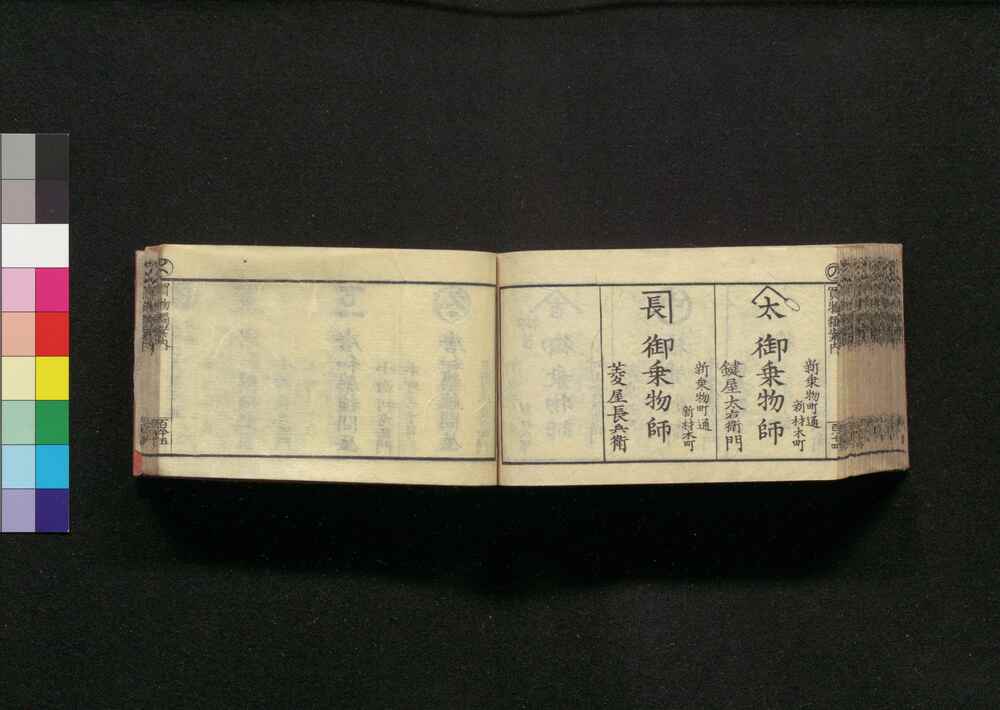 の
買物獨案内
太 御乗物師
新乗物町通
新材木町
鍵屋太右衛門
長 御乗物師
新乗物町通
新材木町
菱屋長兵衛